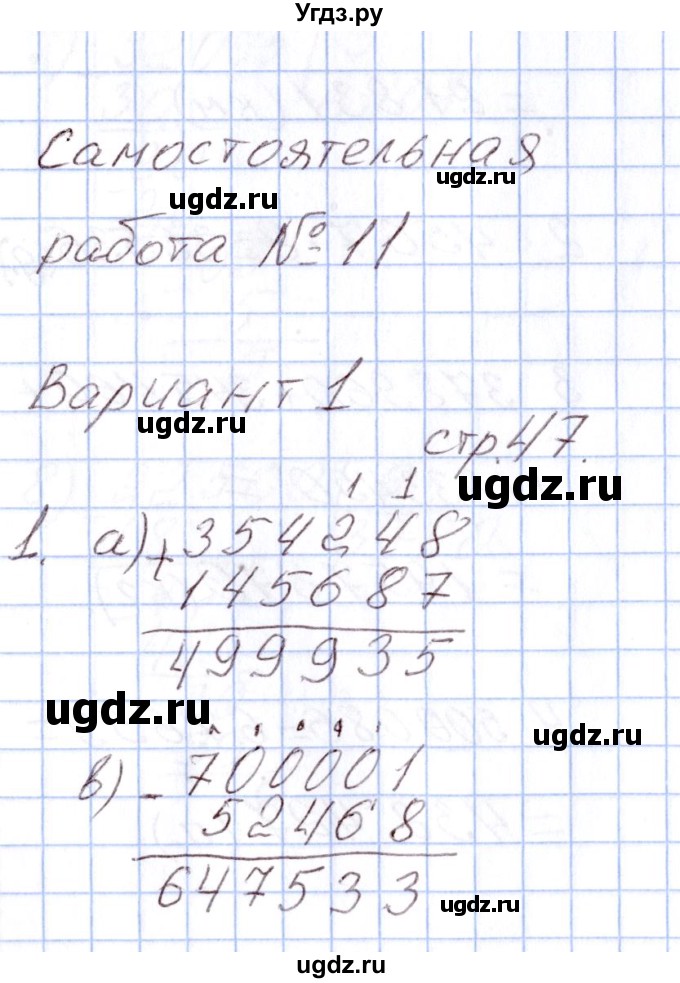 Угдз.ру
Самостоятельная
ugdz.ru
ugdz.ru
работа № 11
Вариант 1
ugdz.ru
стр. 47.
ugdz.ru
1 1
1. а) + 354248
145687
499935
ugdz.ru
ugdz.ru
в) - 700001
52468
647533
ugdz.ru
ugdz.ru